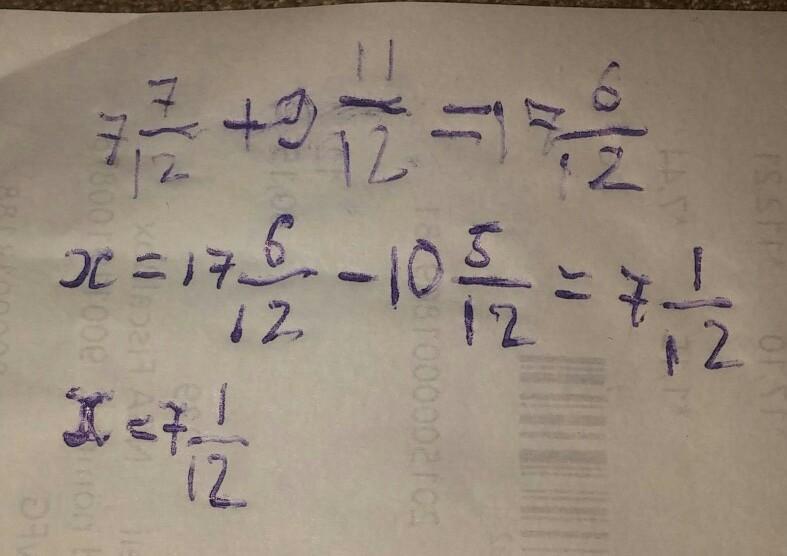 7 7/12 + 9 11/12 = 17 6/12
x = 17 6/12 - 10 5/12 = 7 1/12
x = 7 1/12